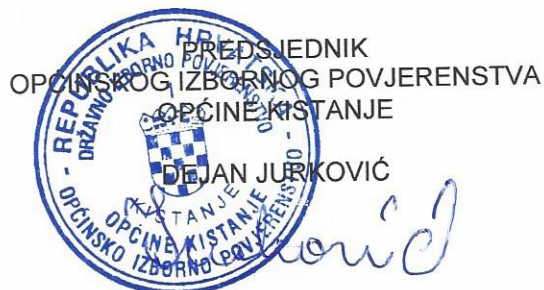 PREDSJEDNIK
OPĆINSKOG IZBORNOG POVJERENSTVA
OPĆINE KISTANJE
DEJAN JURKOVIĆ
REPUBLIKA HRVATSKA
DRŽAVNO IZBORNO POVJERENSTVO
1
KISTANJE
OPĆINSKO IZBORNO POVJERENSTVO
OPĆINE KISTANJE